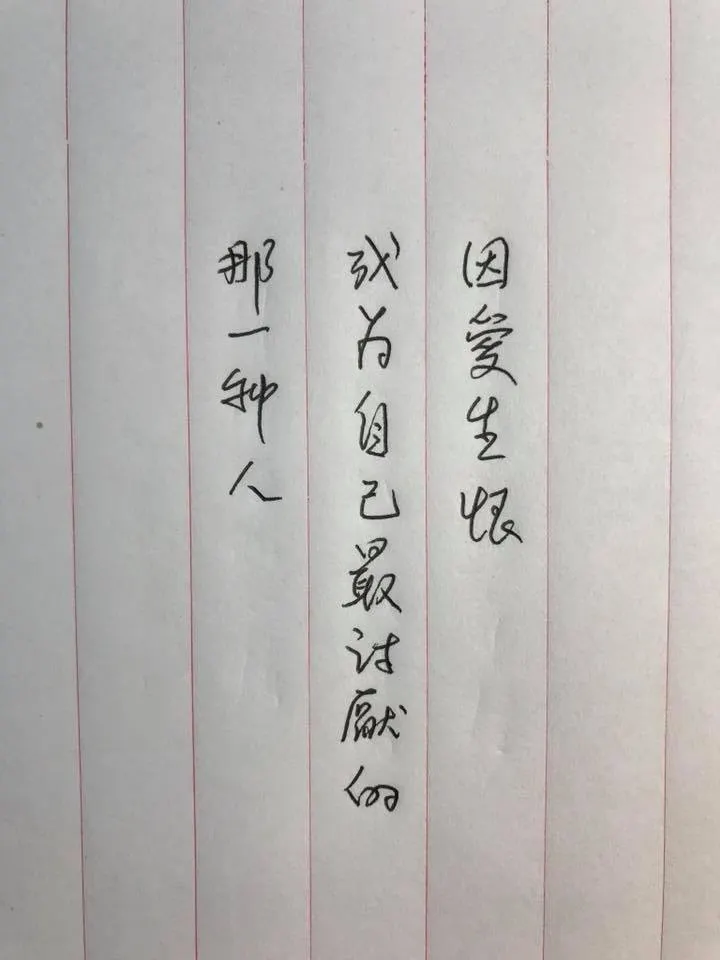 因愛生恨
成为自己最讨厭的
那一种人